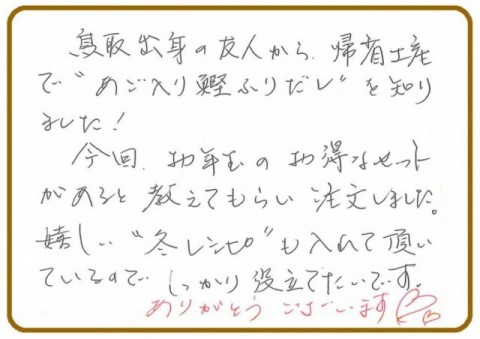 鳥取出身の友人から、帰省土産
で"あご入り鰹ふりだし"を知り
ました!
今回、お年玉のお得なセット
があると教えてもらい注文しました。
嬉しい"冬レシピ"も入れて頂い
ているので しっかり役立てたいです。
ありがとうございます